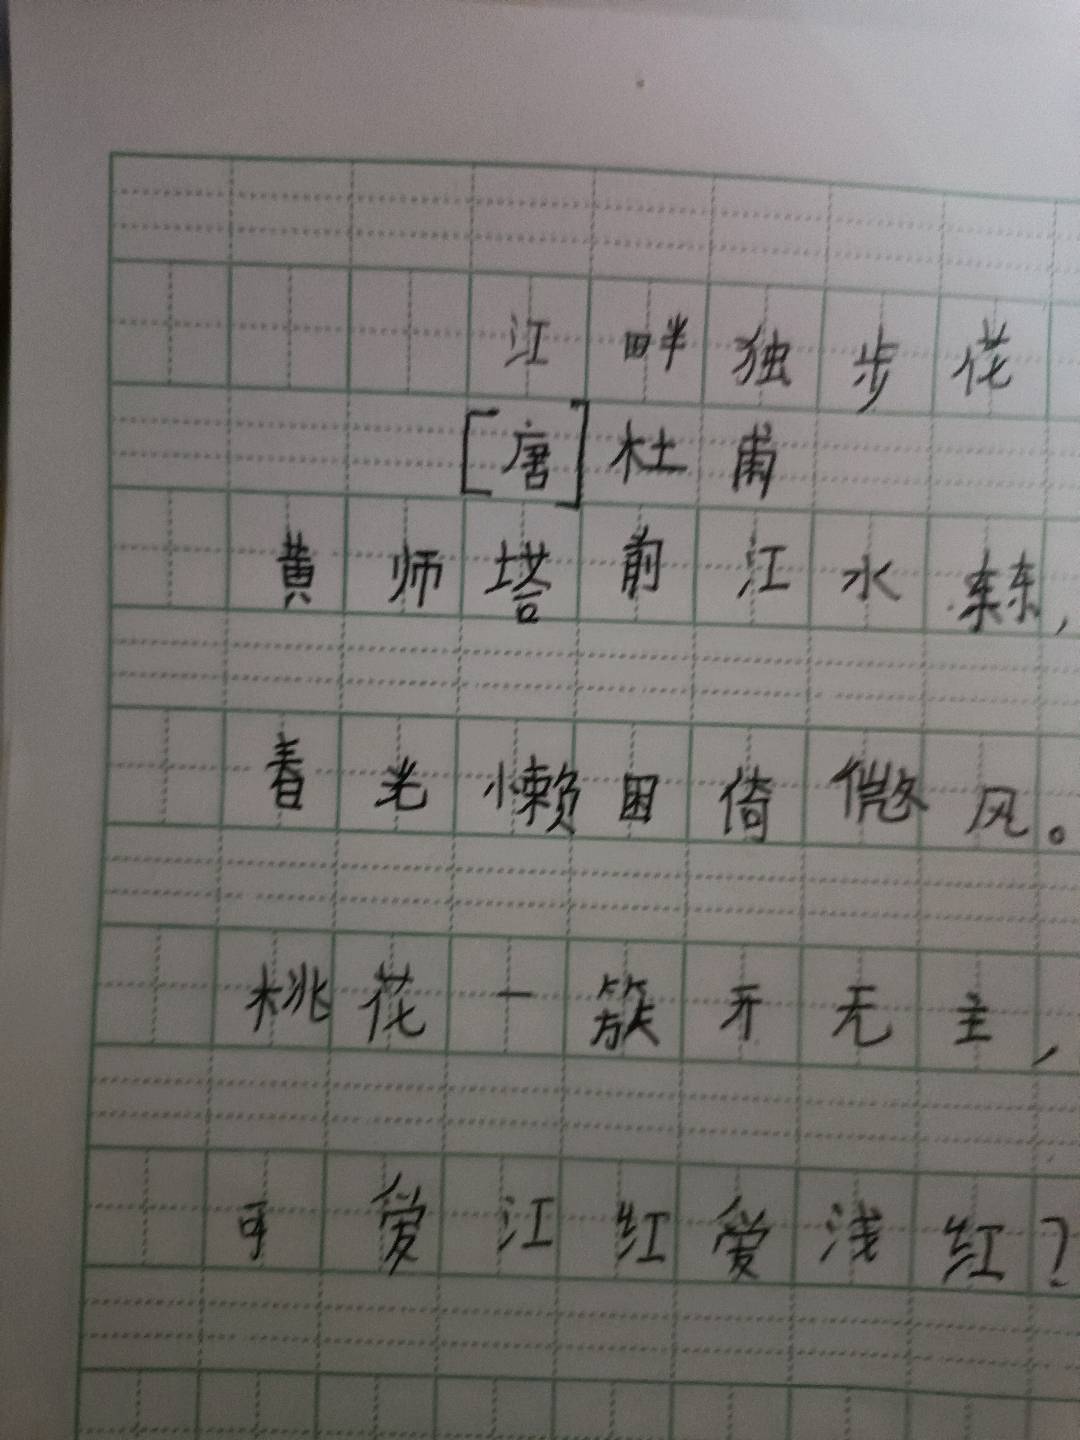 江畔独步花
[唐]杜甫
黄师塔前江水东,
春光懒困倚微风。
桃花一簇开无主,
可爱江红爱浅红?